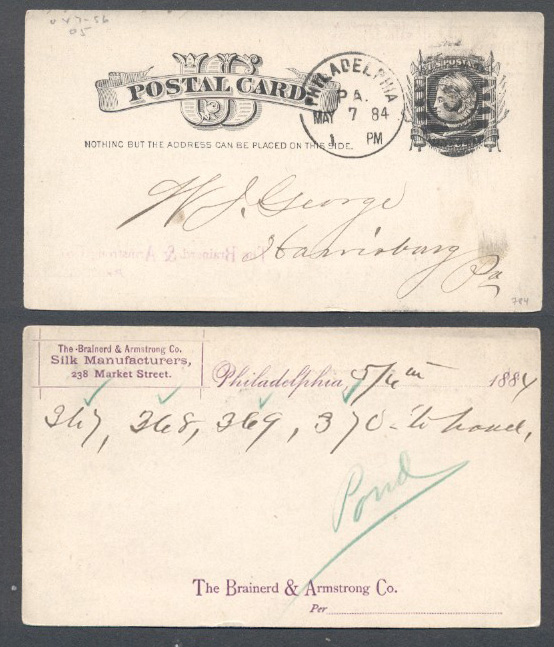 US
POSTAL CARD
NOTHING BUT THE ADDRESS CAN BE PLACED ON THIS SIDE.
PHILADELPHIA
PA.
MAY 7 84
1 PM
U.S. POSTAGE
W. J. George
Harrisburg
Pa
784
The Brainerd & Armstrong Co.
Silk Manufacturers,
238 Market Street.
Philadelphia, 5/6 1884
367, 368, 369, 370 - to hand,
Pond
The Brainerd & Armstrong Co.
Per